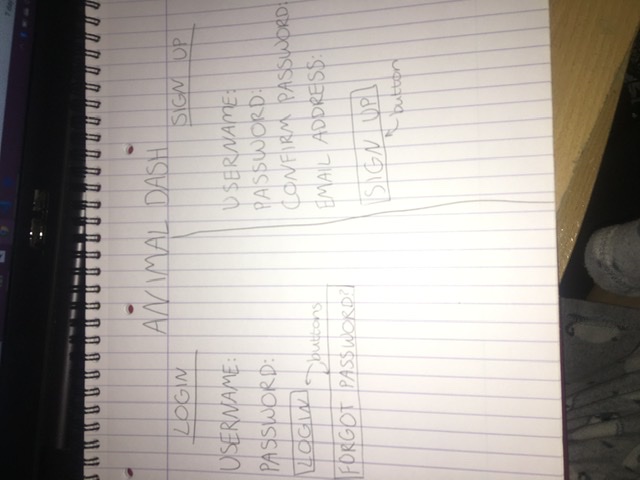 ANIMAL DASH
LOGIN
USERNAME:
PASSWORD:
LOGIN
buttons
FORGOT PASSWORD?
SIGN UP
USERNAME:
PASSWORD:
CONFIRM PASSWORD:
EMAIL ADDRESS:
SIGN UP
button